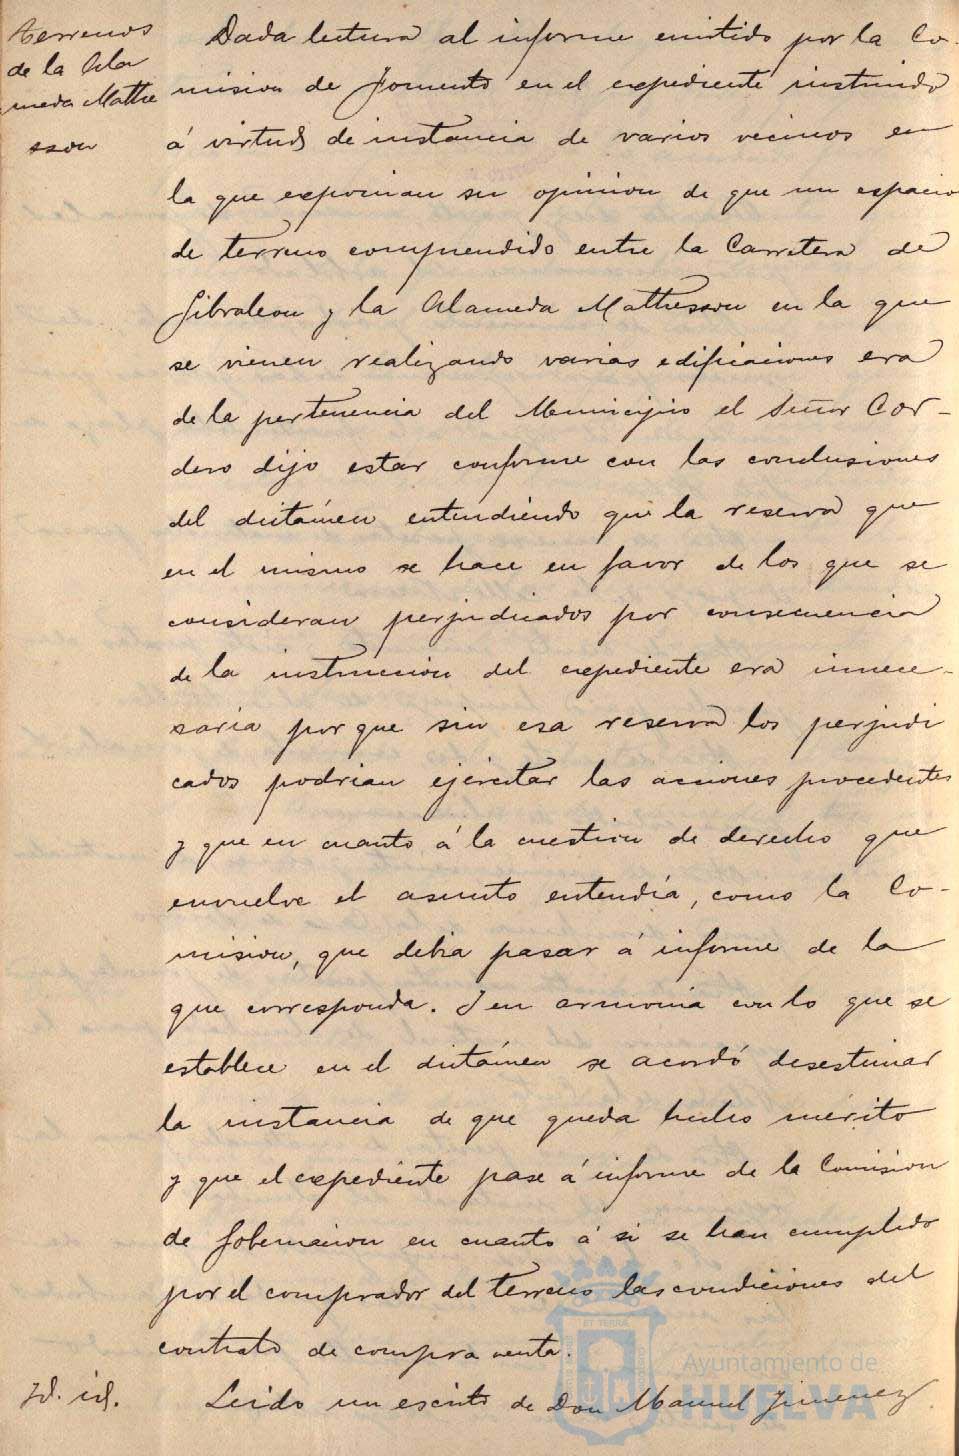 terrenos
de la Ala
meda Mathe
sson
Dada lectura al informe emitido por la Co-
mision de Fomento en el expediente instruido
á virtud de instancia de varios vecinos en
la que exponian su opinion de que un espacio
de terreno comprendido entre la Carretera de
Gibraleon y la Alameda Mathesson en la que
se vienen realizando varias edificaciones era
de la pertenencia del Municipio el Señor Cor-
dero dijo estar conforme con las conclusiones
del dictámen entendiendo que la reserva que
en el mismo se hace en favor de los que se
consideran perjudicados por consecuencia
de la instruccion del expediente era innece-
saria por que sin esa reserva los perjudi
cados podrian ejercitar las acciones procedentes
y que en cuanto á la cuestion de derecho que
envuelve el asunto entendía, como la Co-
mision, que debia pasar á informe de la
que corresponda. I en armonia con lo que se
establece en el dictámen se acordó desestimar
la instancia de que queda hecho mérito
y que el expediente pase á informe de la Comision
de Gobernacion en cuanto á si se han cumplido
por el comprador del terreno las condiciones del
contrato de compra venta.
Id. id.
Leido un escrito de Don Manuel Jimenez
ET TERRA
Ayuntamiento de
HUELVA